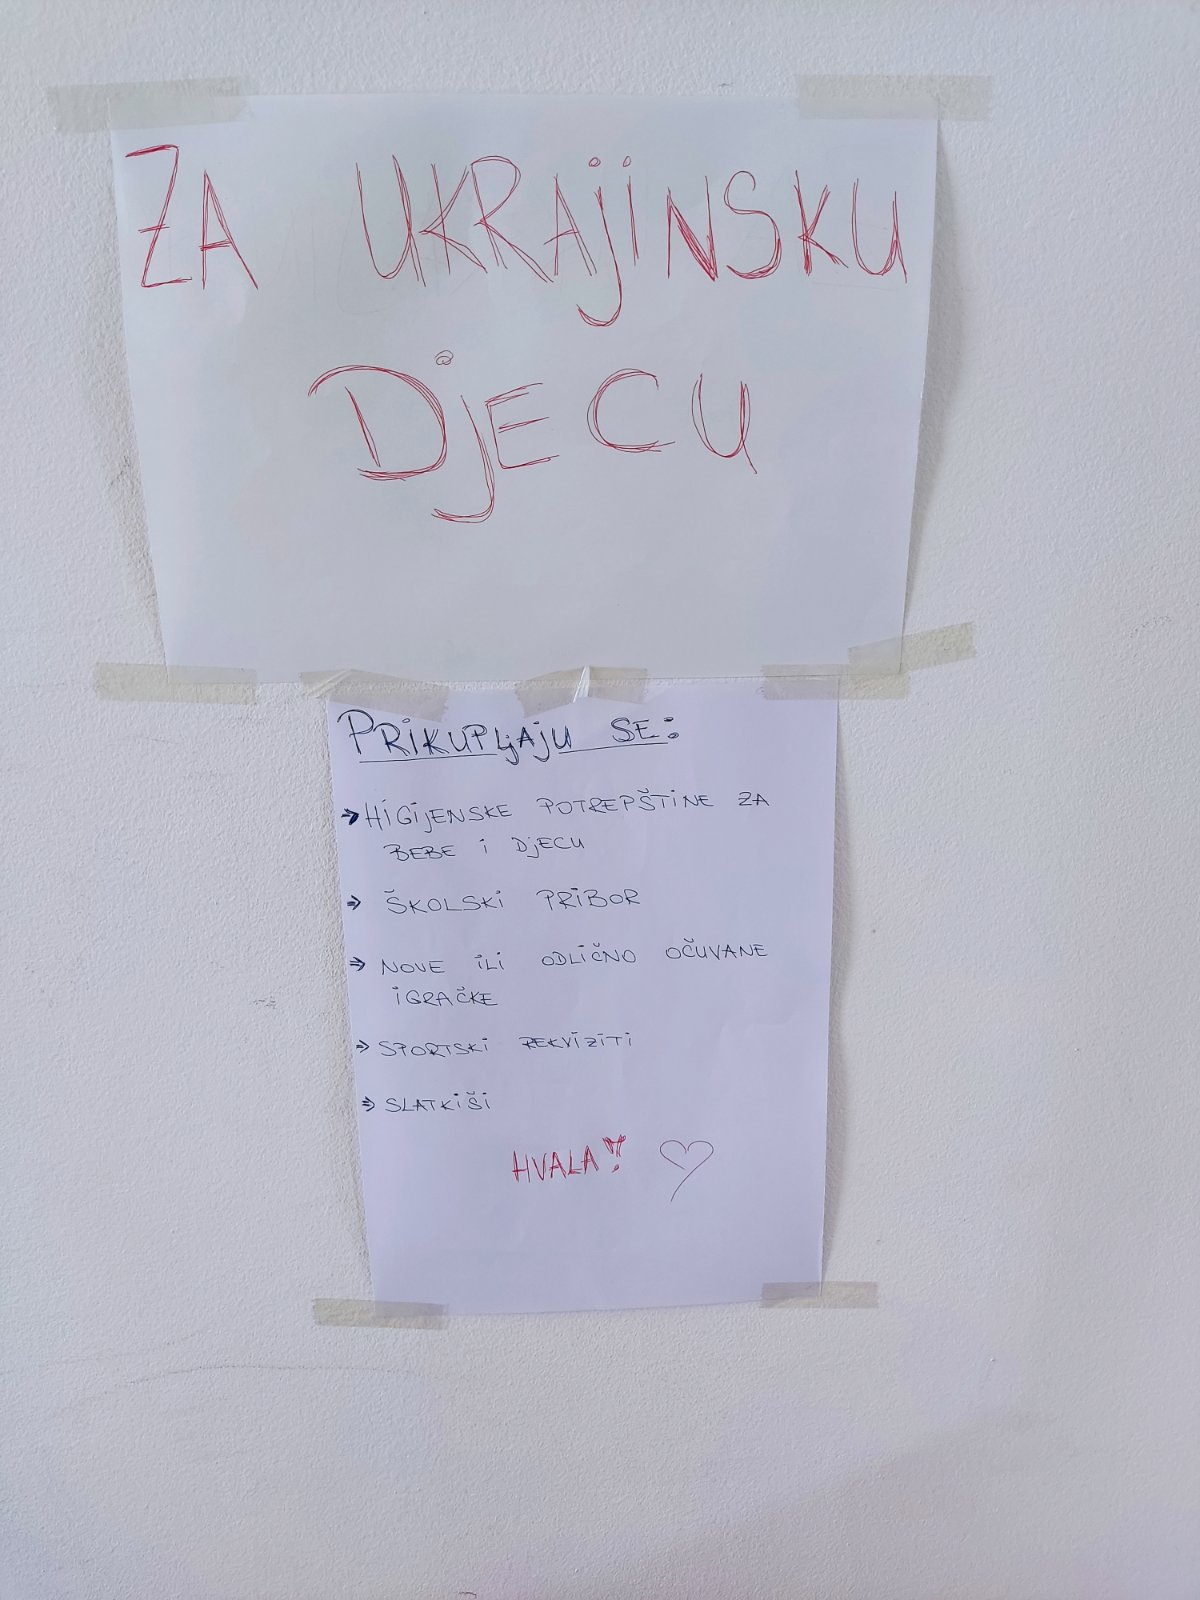 ZA UKRAjiNSKU
DjECU
PRiKUPLjAjU SE:
→ HiGijENSKE POTREPŠTiNE ZA
BEBE i DjECU
→ ŠKOLSKi PRiBOR
→ NOVE iLi ODLiČNO OČUVANE
iGRAČKE
→ SPORTSKi REKViZiTi
→ SLATKiŠi
HVALA! ♡